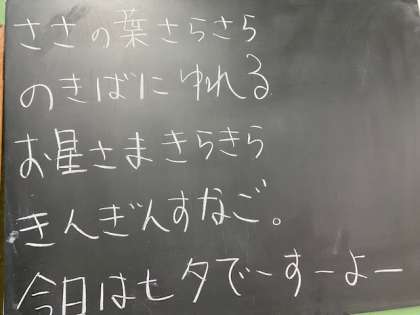 ささの葉さらさら
のきばにゆれる
お星さまきらきら
きんぎんすなご。
今日は七夕でーすーよー